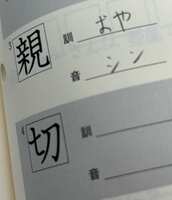 3
親
訓 おや
音 シン
4
切
訓
音